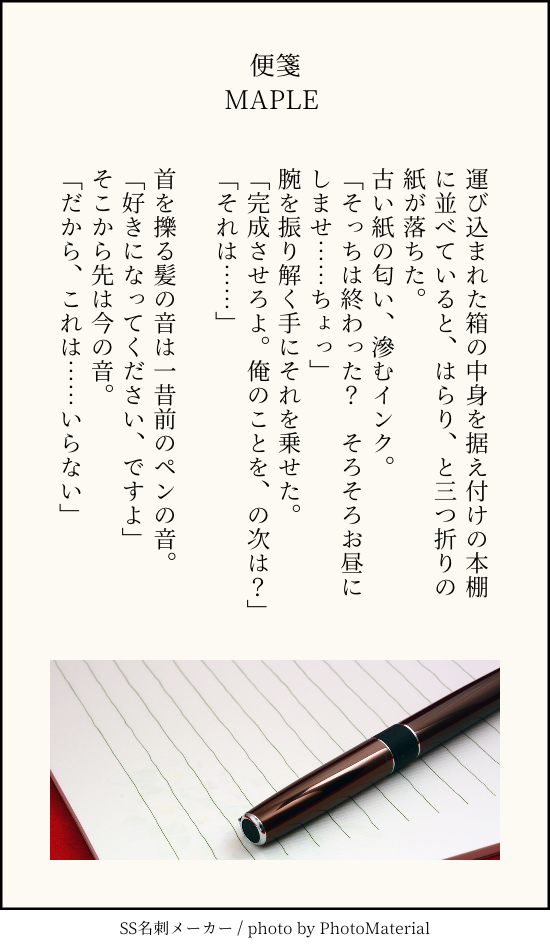 便箋
MAPLE
運び込まれた箱の中身を据え付けの本棚
に並べていると、はらり、と三つ折りの
紙が落ちた。
古い紙の匂い、滲むインク。
「そっちは終わった？　そろそろお昼に
しませ……ちょっ」
腕を振り解く手にそれを乗せた。
「完成させろよ。俺のことを、の次は？」
「それは……」
首を擽る髪の音は一昔前のペンの音。
「好きになってください、ですよ」
そこから先は今の音。
「だから、これは……いらない」
SS名刺メーカー / photo by PhotoMaterial